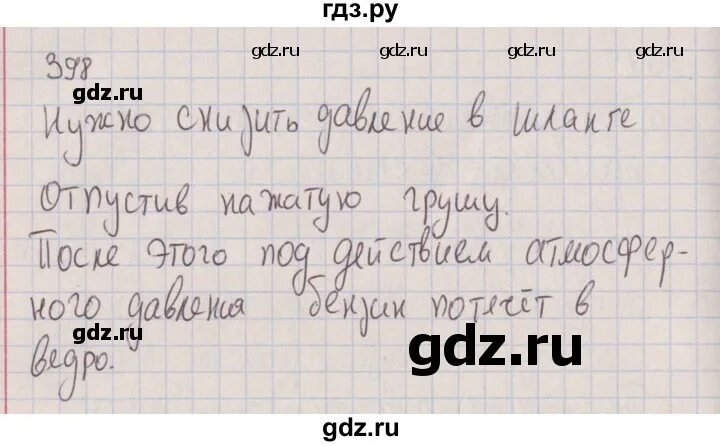 гдз.ру
398
gdz.ru gdz.ru
gdz.ru
Нужно снизить давление в шланге
gdz.ru gdz.ru
Отпустив нажатую грушу.
gdz.ru
После этого под действием атмосфер-
gdz.ru gdz.ru
ного давления бензин потечёт в
gdz.ru
ведро.
gdz.ru
gdz.ru